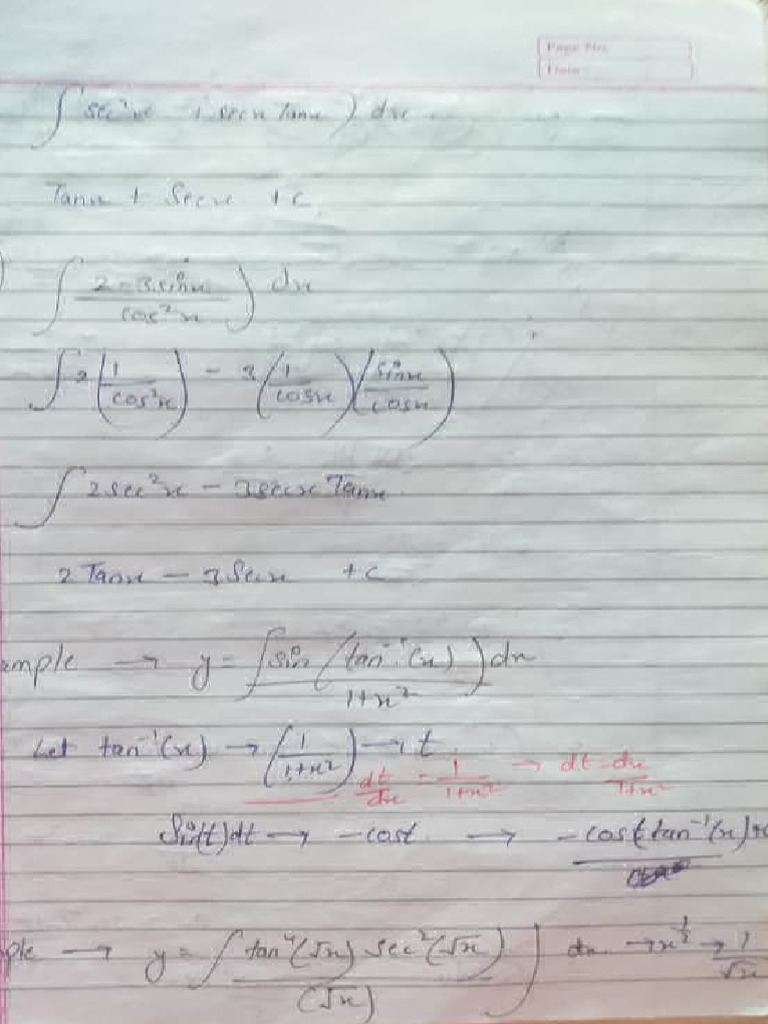 Page No.
Date
∫ sec²x + secx Tanx ) dx
Tanx + Secx + c
∫ (2-3sinx / cos²x) dx
∫ 2 (1 / cos²x) - 3 (1 / cosx) (sinx / cosx)
∫ 2sec²x - 3secx Tanx
2 Tanx - 3 Secx + c
ample → y = ∫ sin (tan⁻¹(x)) / 1+x² dx
Let tan⁻¹(x) → (1 / 1+x²) → t
dt/dx = 1/1+x² → dt = dx/1+x²
Sin(t)dt → -cost → -cos(tan⁻¹(x)+c
ple → y = ∫ tan⁴(√x) sec²(√x) / (√x) dx → x^1/2 → 1/√x